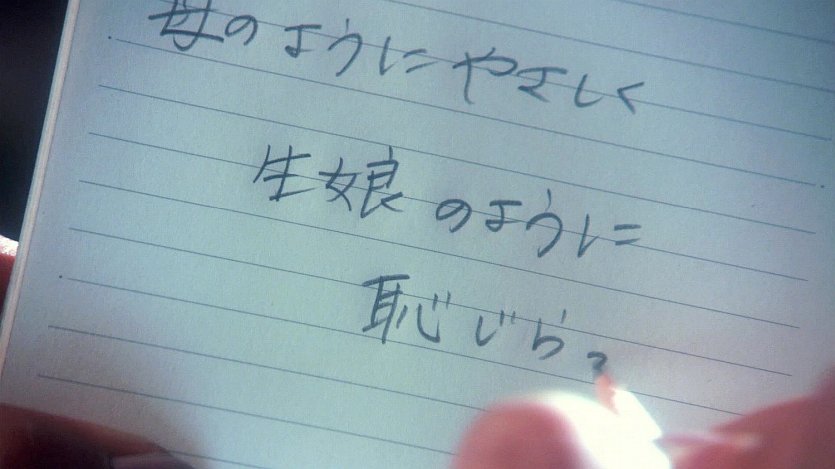 母のようにやさしく
生娘のように
恥じらっ